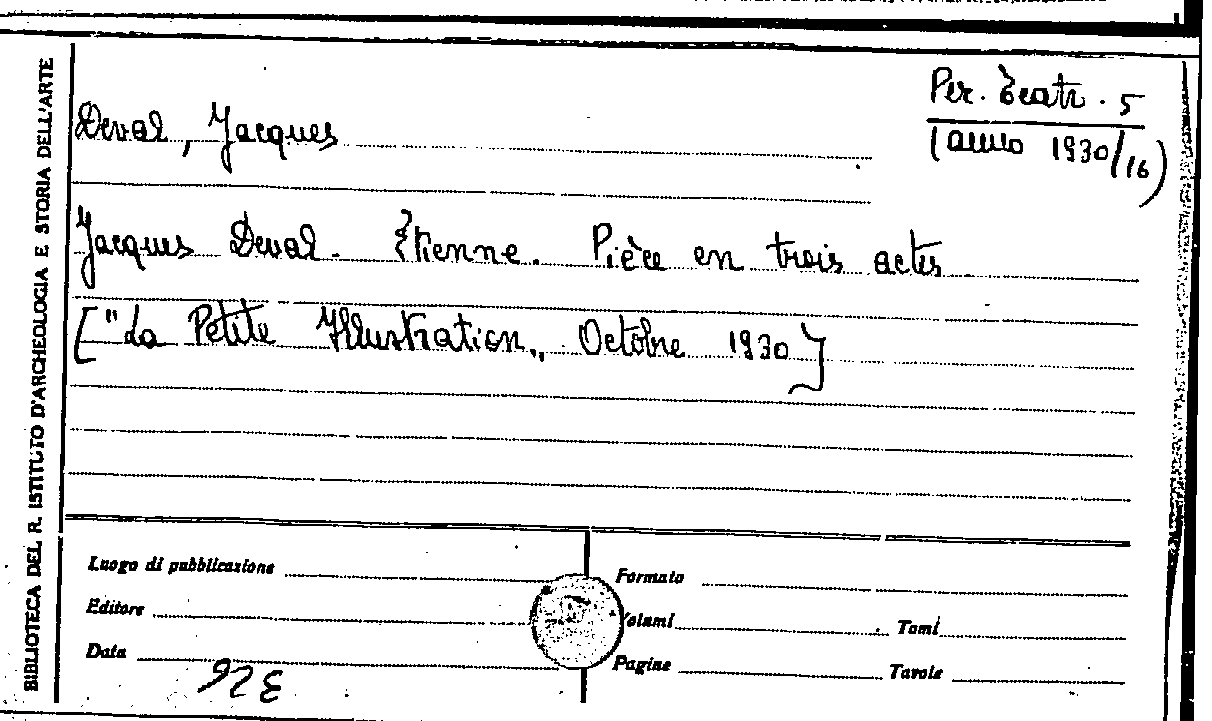 Per. Teatr. 5
(anno 1930/16)
Deval, Jacques
Jacques Deval. Étienne. Pièce en trois actes
["La Petite Illustration„ Octobre 1930]
BIBLIOTECA DEL R. ISTITUTO D'ARCHEOLOGIA E STORIA DELL'ARTE
Luogo di pubblicazione
Formato
Editore
Volumi
Tomi
Data
Pagine
Tavole